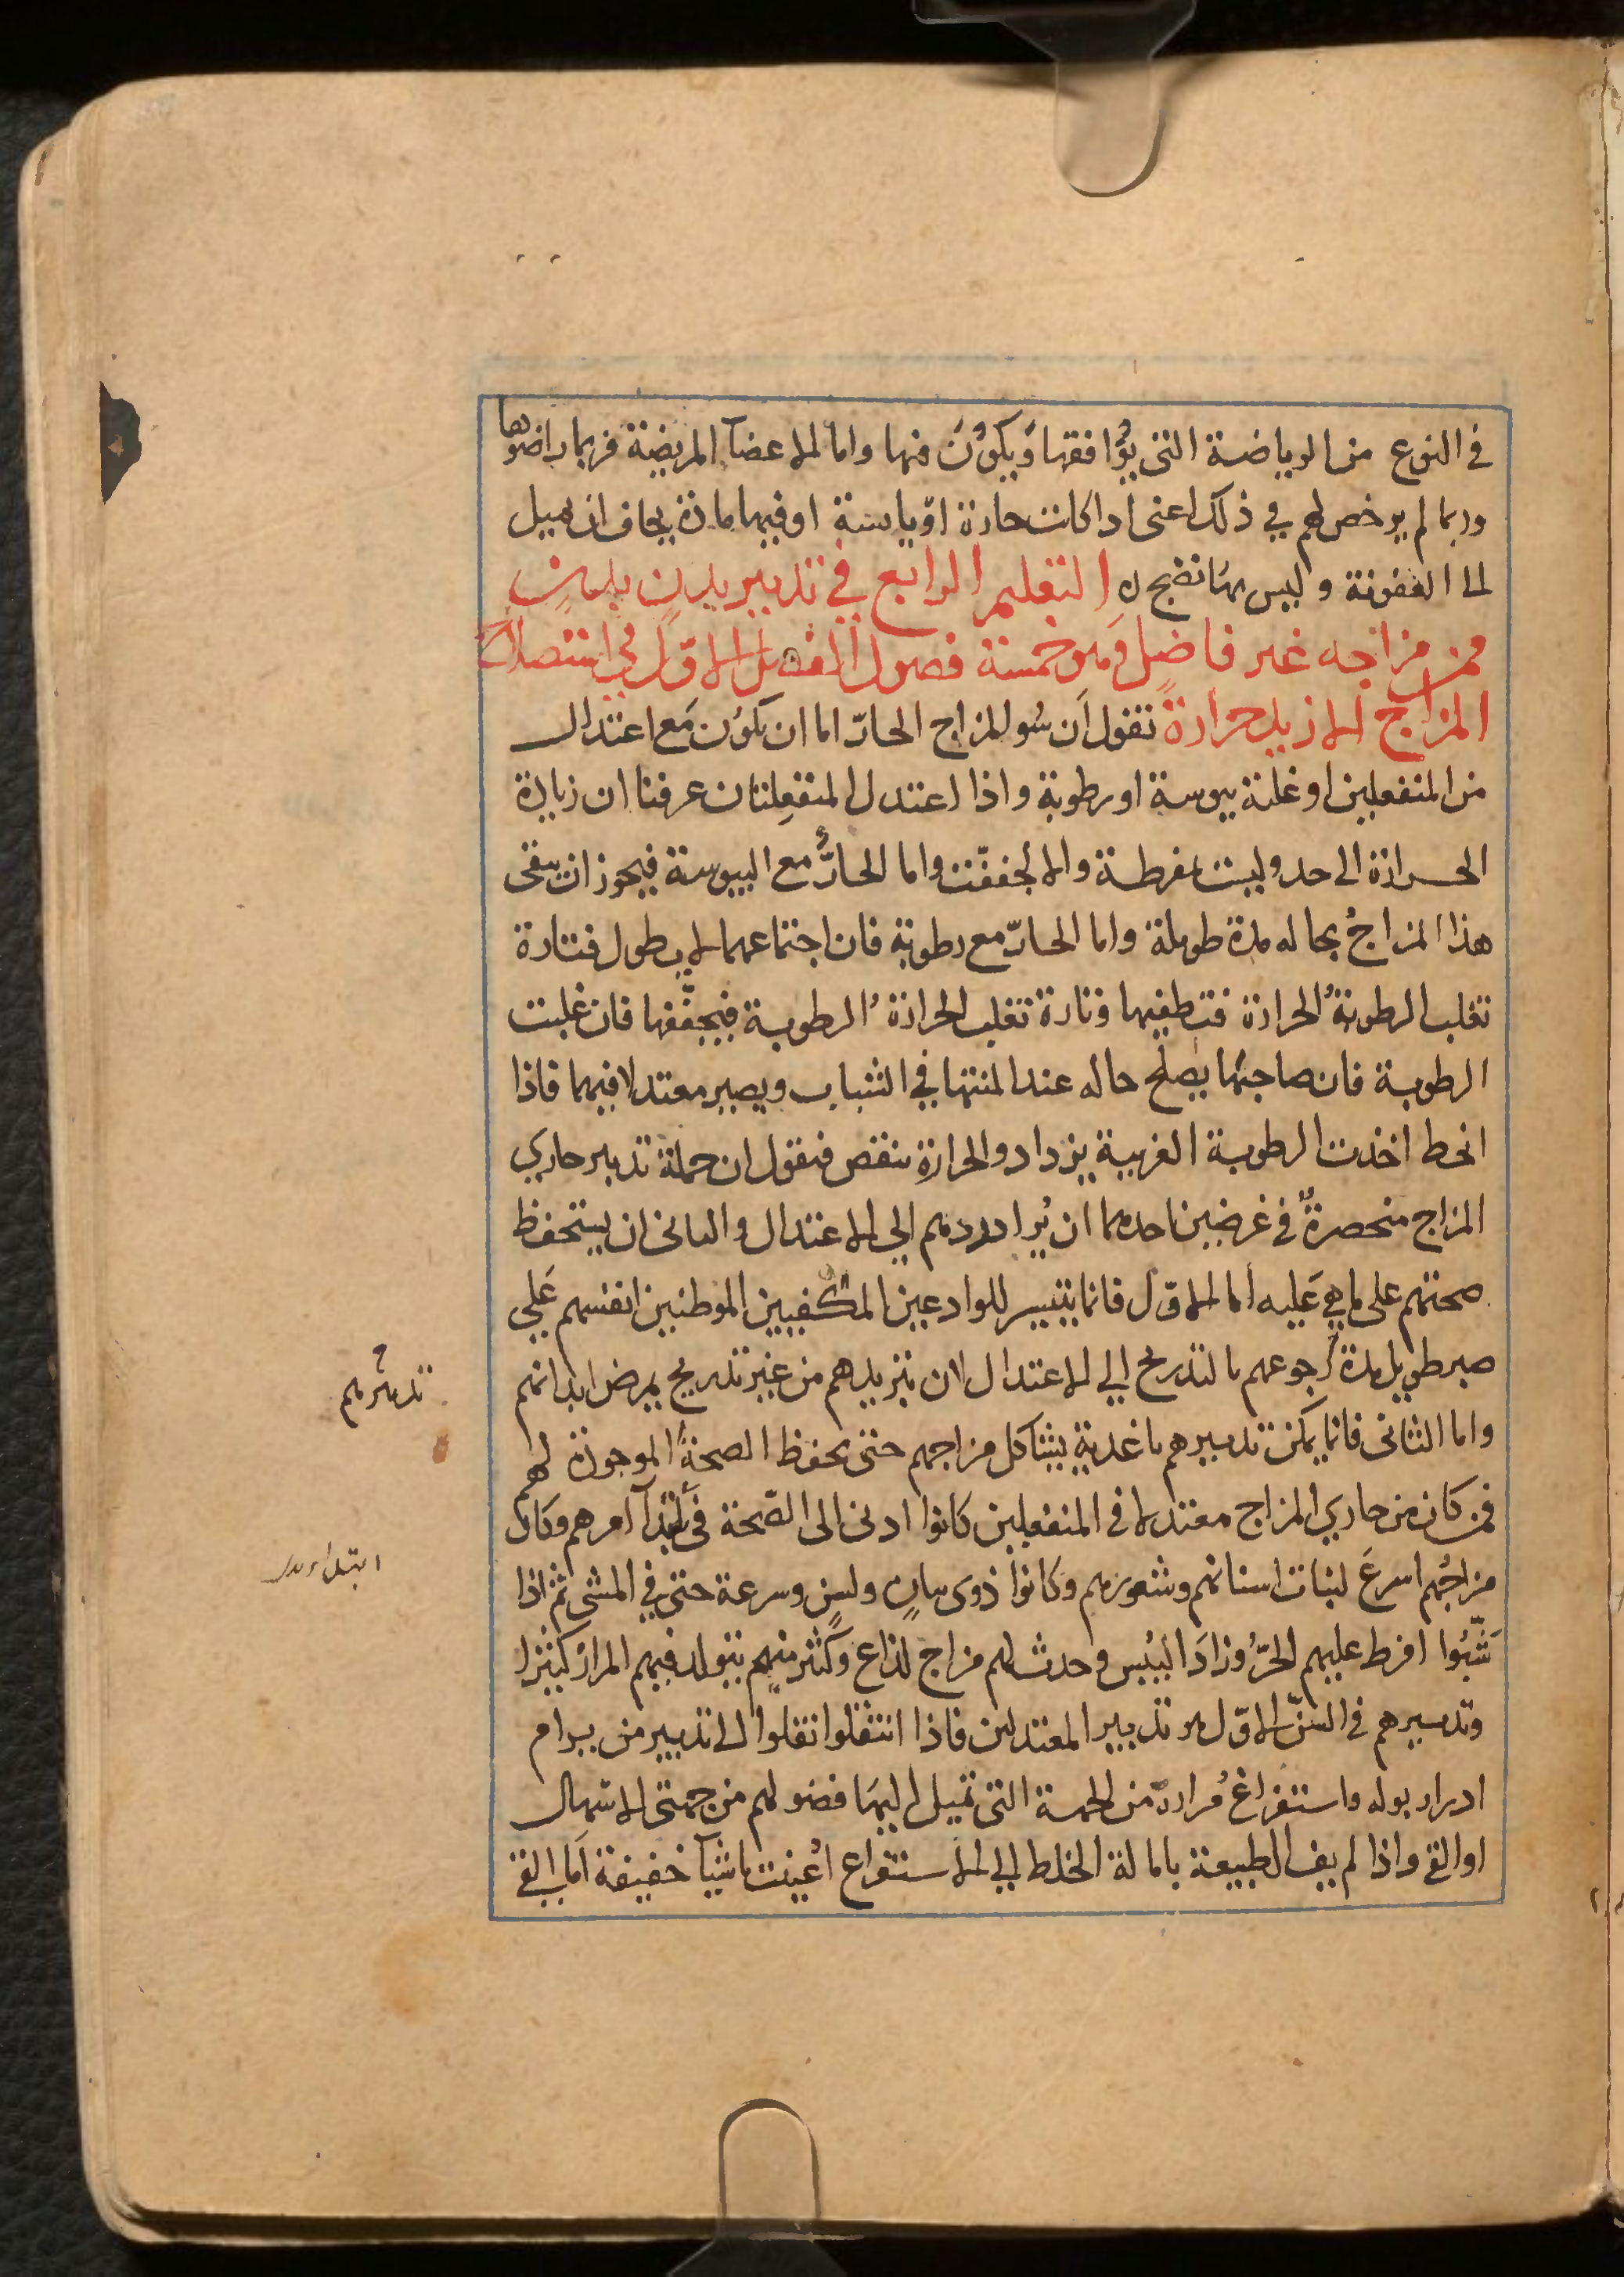 في النوع من الرياضة التي يوُافقها وَيكوُنَ فيها واما الاعضآ المريضة فربما راضوها
وربما لم يرخص لهم في ذلك اعني اذا كانت حارة او يابسة او فيها مادة يخاف ان تميل
الى العفونة وليس بها نضج ه التعليم الرابع في تدبير بدن
من مزاجه غير فاضل وهو خمسة فصول الفصل الاوّل في استصلاح
المزاج الازيد حرارةً نقول ان سُو المزاج الحارّ اما ان يكوُن مَع اعتدال
من المنفعلين او غلبة يبوسة او رطوبة واذا اعتدل المنفعِلتان عرفنا ان زيادة
الحرارة الى حد وليست بمفرطة والا لجففّت واما الحارُّ مع اليبوسة فيجوز ان يبقى
هذا المزاجُ بحاله مدة طويلة واما الحارّ مع رطوبة فان اجتماعهما لا يطول فتارة
تغلب الرطوبةُ الحرارة فتطفيها وتارة تغلب الحرارةُ الرطوبة فيجفّفها فان غلبت
الرطوبة فان صاحبهُا يصلح حاله عند المنتها في الشباب ويصير معتدلا فيهما فاذا
انحط اخذت الرطوبة الغريبة يزداد والحرارة تنقص فنقول ان جملة تدبير حاري
المزاج منحصرةٌ في غرضين احدهما ان يُراد ردهم الى الاعتدال والثاني ان يستحفظ
صحتهم على ما هي عَليه اما الاوّل فانما يتيسر للوادعين المكفيين الموطنين انفسهم عَلي
صبر طويل مدة رجوعهم بالتدريج الي الاعتدال لان تبريدهم من غير تدريج يمرض ابدانهم
واما الثاني فانما يمكن تدبيرهم باغدية يشاكل مزاجهم حتى يحفظ الصحةُ الموجودة لهم
فمن كان من حاري المزاج معتدلا في المنفعلين كانوا ادنى الى الصّحة في ابتدآ امرهم وكان
مزاجُهم اسرعَ لنبات اسنانهم وشعورهم وكانوا ذوى بيانٍ ولسنٍ وسرعة حتى في المشي ثم اذا
شَبّوُا افرط عليهم الحرُّ وزادَ اليُبس وحدث لهم مزاج لذاع وكثير منهم يتولد فيهم المرارُ كثيرا
وتدبيرهم في السنّ الاوّل هو تدبير المعتدلين فاذا انتقلوا نقلوا الى تدبير من يرام
ادرار بوله واستفراغ مُراره من الجهة التي تميل اليهَا فضولهم من جهتي الاسهال
او القي واذا لم يف الطبيعة بامالة الخلط الي الاستفراغ اعُينت باشيآ خفيفة اما القي
تدبيرهم
ابتداء